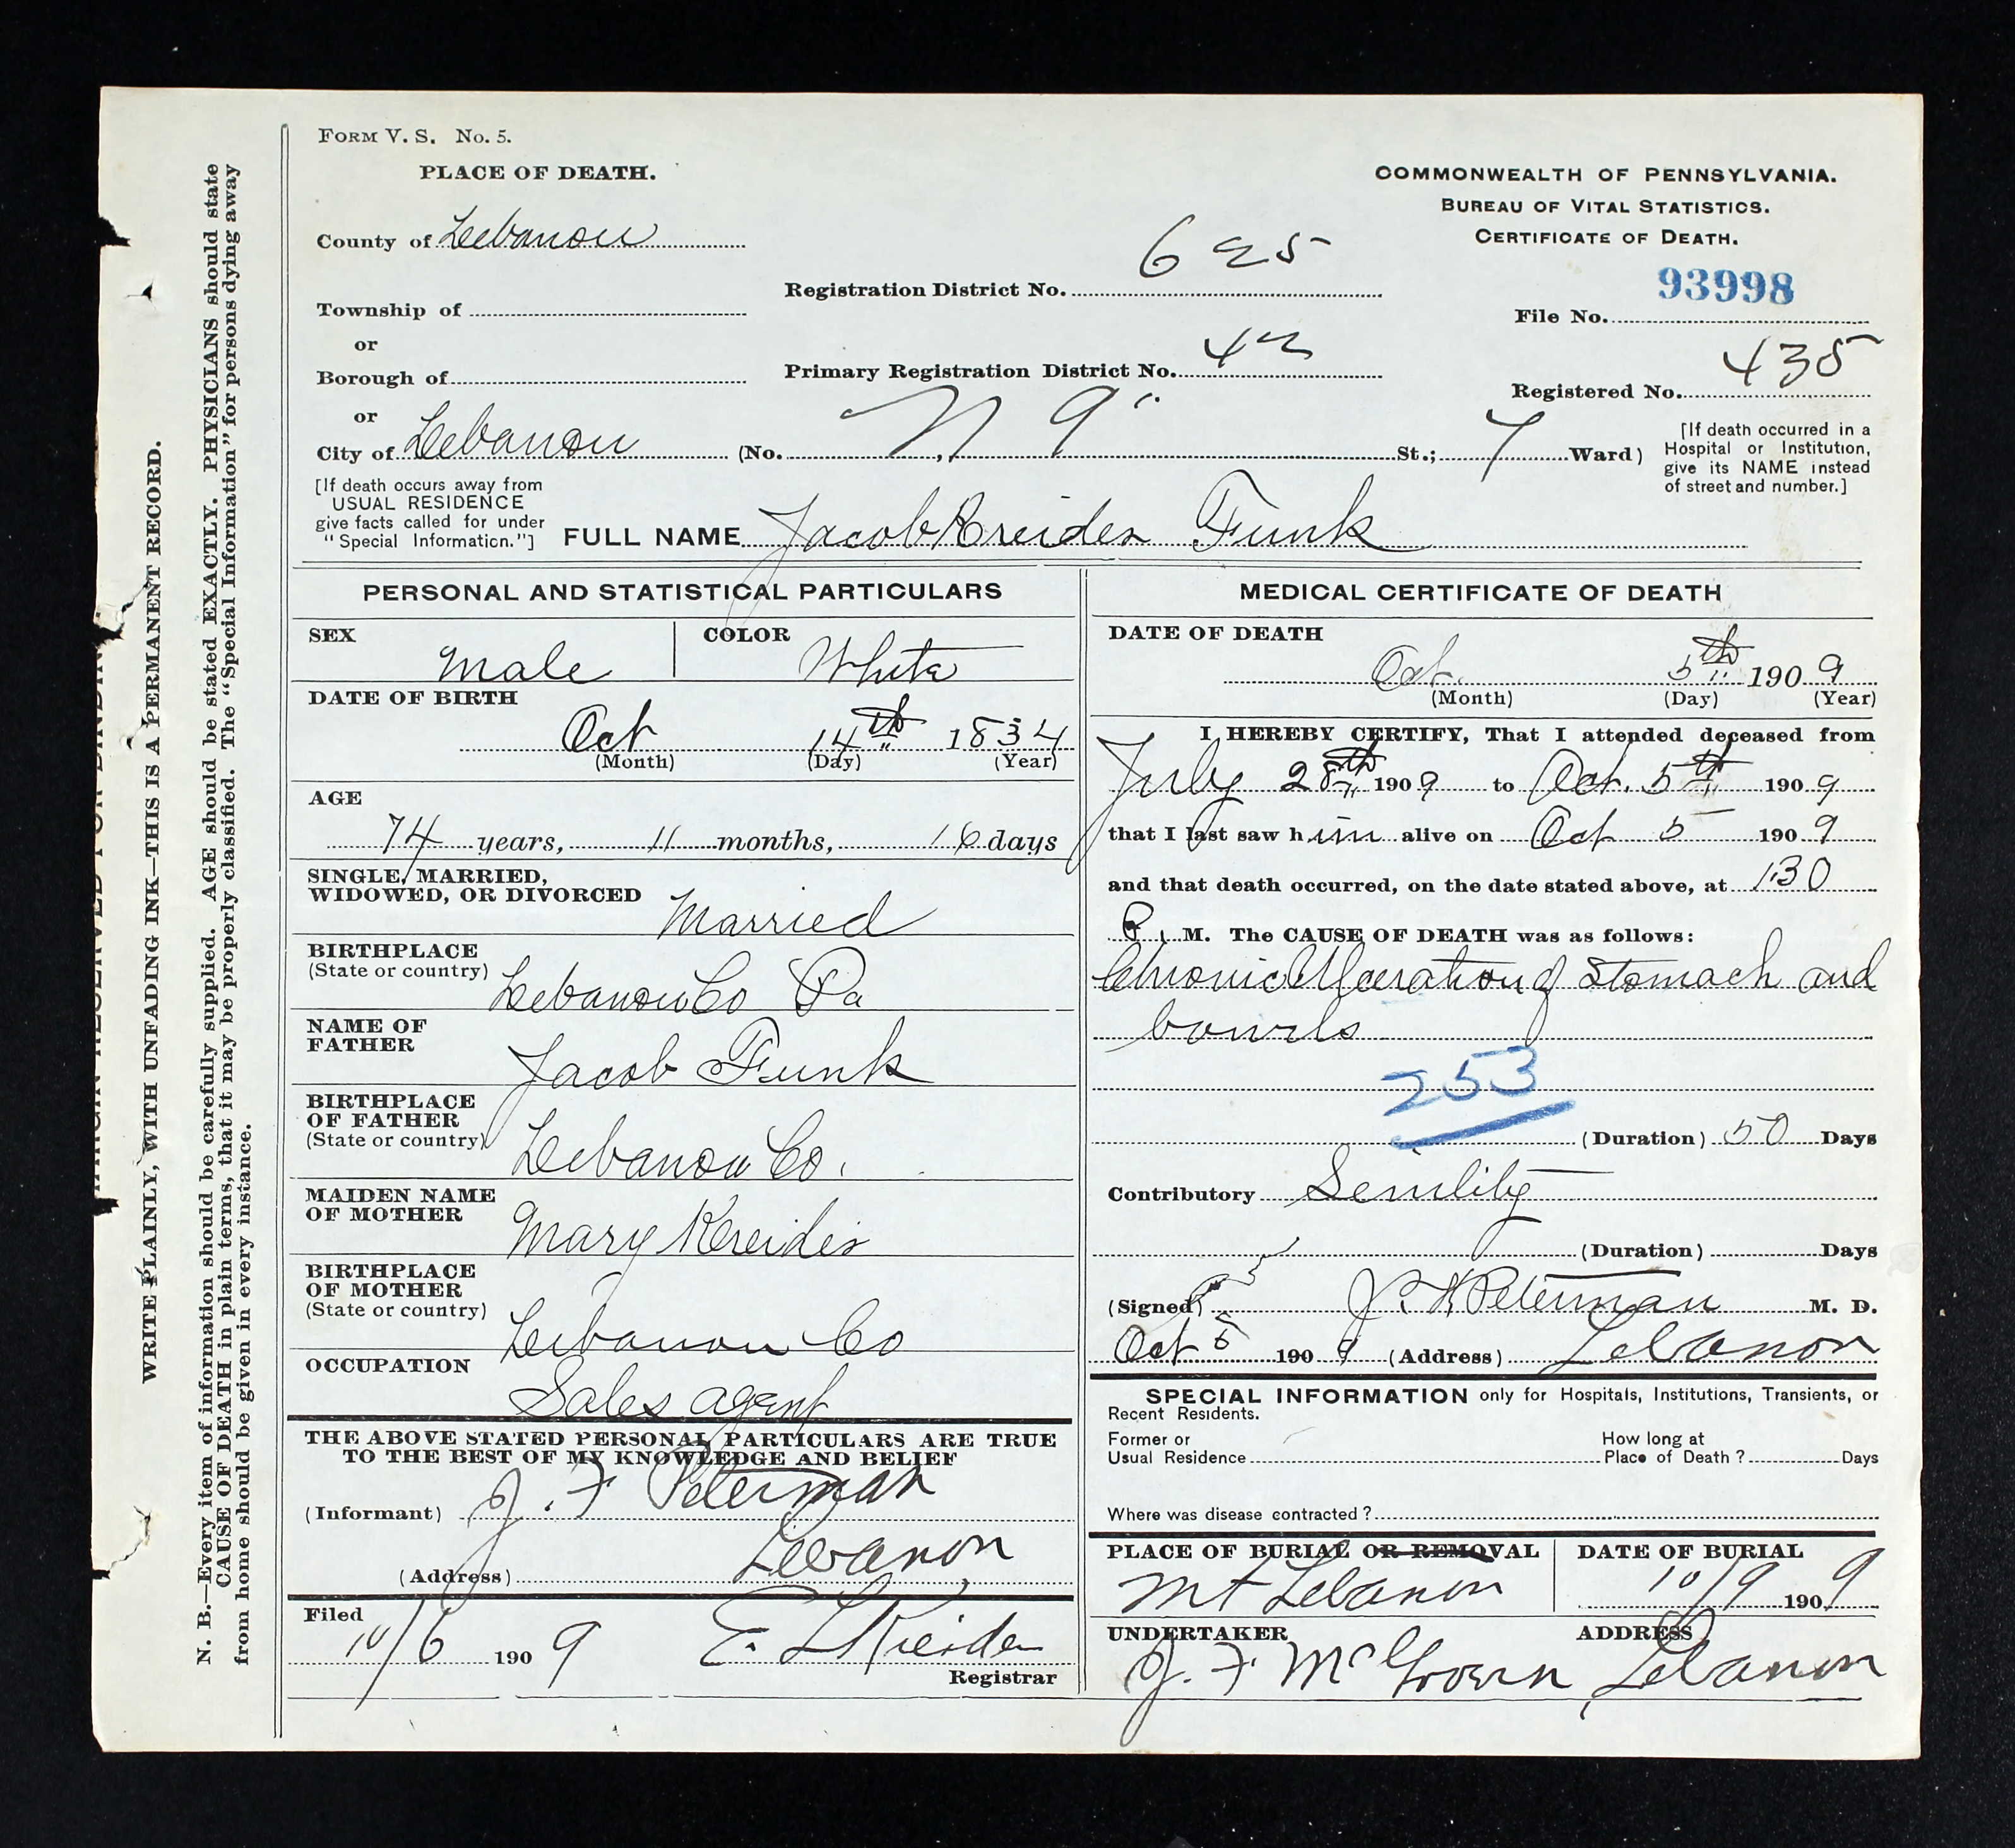 FORM V. S. No. 5.
PLACE OF DEATH.
County of Lebanon
Township of
or
Borough of
or
City of Lebanon (No. N 9" St.; 7 Ward)
[If death occurs away from
USUAL RESIDENCE
give facts called for under
"Special Information."]
COMMONWEALTH OF PENNSYLVANIA.
BUREAU OF VITAL STATISTICS.
CERTIFICATE OF DEATH.
Registration District No. 625
93998
File No.
Primary Registration District No. 42
Registered No. 435
[If death occurred in a
Hospital or Institution,
give its NAME instead
of street and number.]
FULL NAME Jacob Kreider Funk
PERSONAL AND STATISTICAL PARTICULARS
SEX Male
COLOR White
DATE OF BIRTH
Oct 14th 1834
(Month) (Day) (Year)
AGE
74 years, 11 months, 16 days
SINGLE, MARRIED,
WIDOWED, OR DIVORCED Married
BIRTHPLACE
(State or country) Lebanon Co Pa
NAME OF
FATHER Jacob Funk
BIRTHPLACE
OF FATHER
(State or country) Lebanon Co.
MAIDEN NAME
OF MOTHER Mary Kreider
BIRTHPLACE
OF MOTHER
(State or country) Lebanon Co
OCCUPATION
Sales agent
THE ABOVE STATED PERSONAL PARTICULARS ARE TRUE
TO THE BEST OF MY KNOWLEDGE AND BELIEF
(Informant) J. F Peterman
(Address) Lebanon
Filed
10/6 1909 E. L Kreider
Registrar
MEDICAL CERTIFICATE OF DEATH
DATE OF DEATH
Oct. 5th 1909
(Month) (Day) (Year)
I HEREBY CERTIFY, That I attended deceased from
July 28th 1909 to Oct. 5th 1909
that I last saw him alive on Oct 5 1909
and that death occurred, on the date stated above, at 1:30
P. M. The CAUSE OF DEATH was as follows:
Chronic Ulceration of Stomach and
bowels
253
(Duration) 50 Days
Contributory Senility
(Duration) Days
(Signed) Peterman M. D.
Oct 5 1909 (Address) Lebanon
SPECIAL INFORMATION only for Hospitals, Institutions, Transients, or
Recent Residents.
Former or
Usual Residence
How long at
Place of Death ? Days
Where was disease contracted ?
PLACE OF BURIAL OR REMOVAL
Mt Lebanon
DATE OF BURIAL
10/9 1909
UNDERTAKER ADDRESS
J. F McGovern, Lebanon
WRITE PLAINLY, WITH UNFADING INK—THIS IS A PERMANENT RECORD.
N. B.—Every item of information should be carefully supplied. AGE should be stated EXACTLY. PHYSICIANS should state
CAUSE OF DEATH in plain terms, that it may be properly classified. The "Special Information" for persons dying away
from home should be given in every instance.